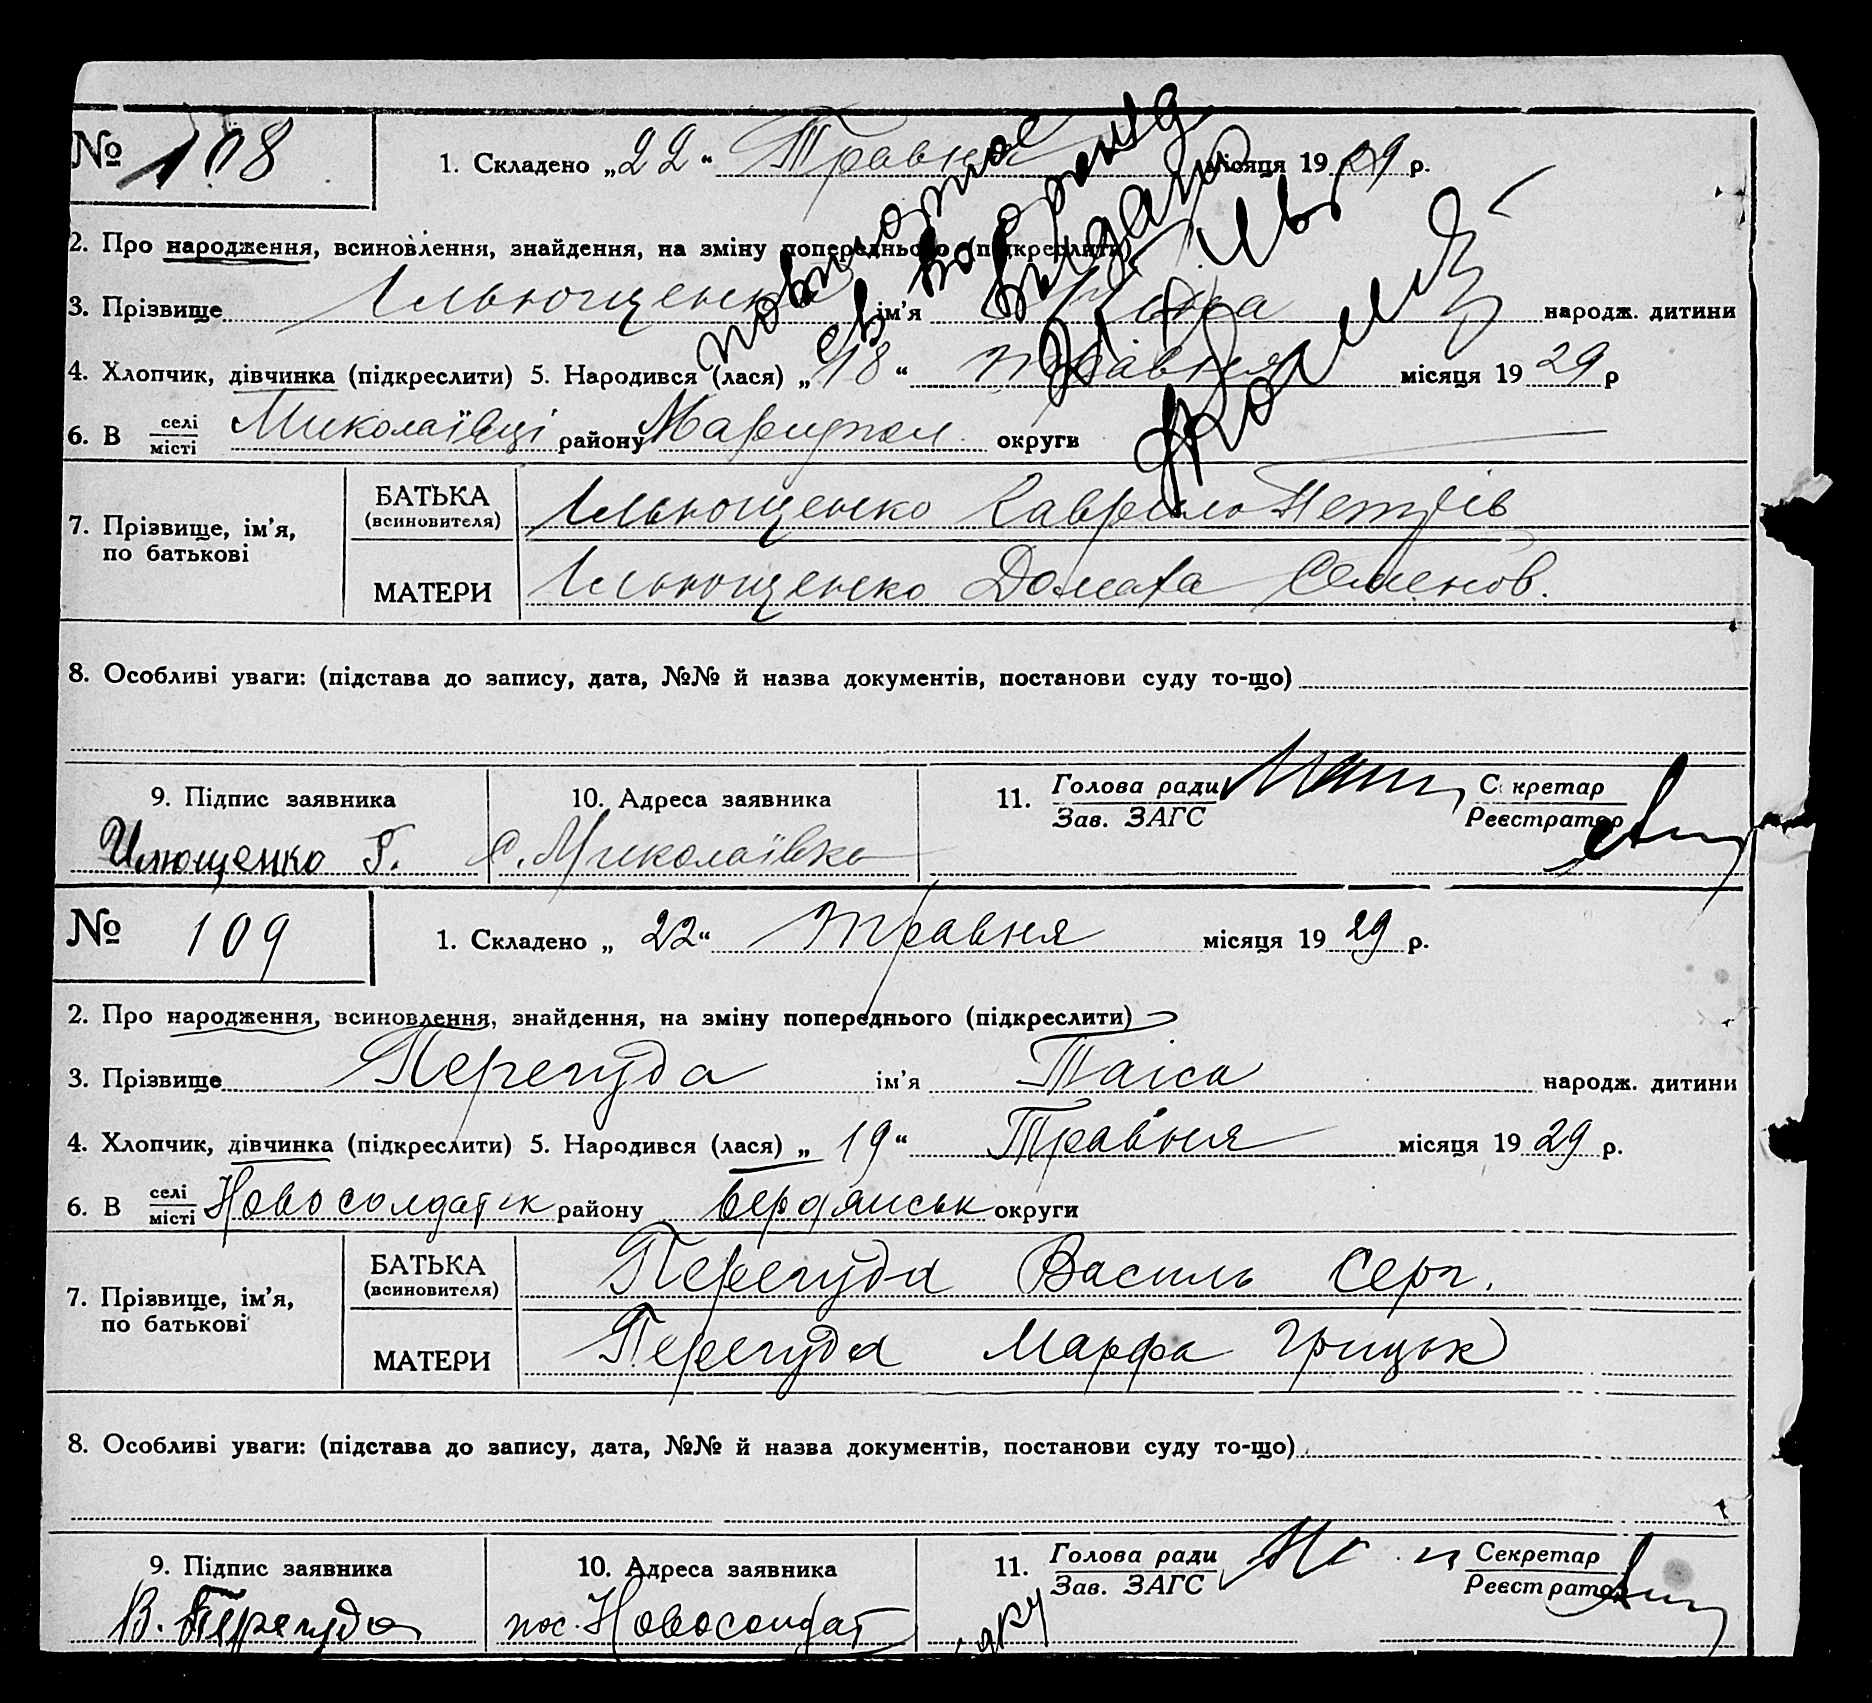 № 108
1. Складено „22“ Травня місяця 1929 р.
2. Про народження, всиновлення, знайдення, на зміну попереднього (підкреслити)
3. Прізвище Ільющенко ім'я Ніна народж. дитини
4. Хлопчик, дівчинка (підкреслити) 5. Народився (лася) „18“ травня місяця 1929 р
6. В селі/місті Миколаївці району Маріупол округи
повторное
св. о рождении
выдано
7. Прізвище, ім'я, по батькові
БАТЬКА (всиновителя) Ільющенко Гаврило Петрів
МАТЕРИ Ільющенко Домаха Семенов.
8. Особливі уваги: (підстава до запису, дата, №№ й назва документів, постанови суду то-що)
9. Підпис заявника
10. Адреса заявника
11. Голова ради/Зав. ЗАГС
Секретар/Реєстратор
Илющенко Г.
с. Миколаївка
№ 109
1. Складено „22“ травня місяця 1929 р.
2. Про народження, всиновлення, знайдення, на зміну попереднього (підкреслити)
3. Прізвище Перегуда ім'я Таіса народж. дитини
4. Хлопчик, дівчинка (підкреслити) 5. Народився (лася) „19“ Травня місяця 1929 р.
6. В селі/місті Новосолдатск району Бердянськ округи
7. Прізвище, ім'я, по батькові
БАТЬКА (всиновителя) Перегуда Василь Серг.
МАТЕРИ Перегуда Марфа Грицьк
8. Особливі уваги: (підстава до запису, дата, №№ й назва документів, постанови суду то-що)
9. Підпис заявника
10. Адреса заявника
11. Голова ради/Зав. ЗАГС
Секретар/Реєстратор
В. Перегуда
пос. Новосолдат